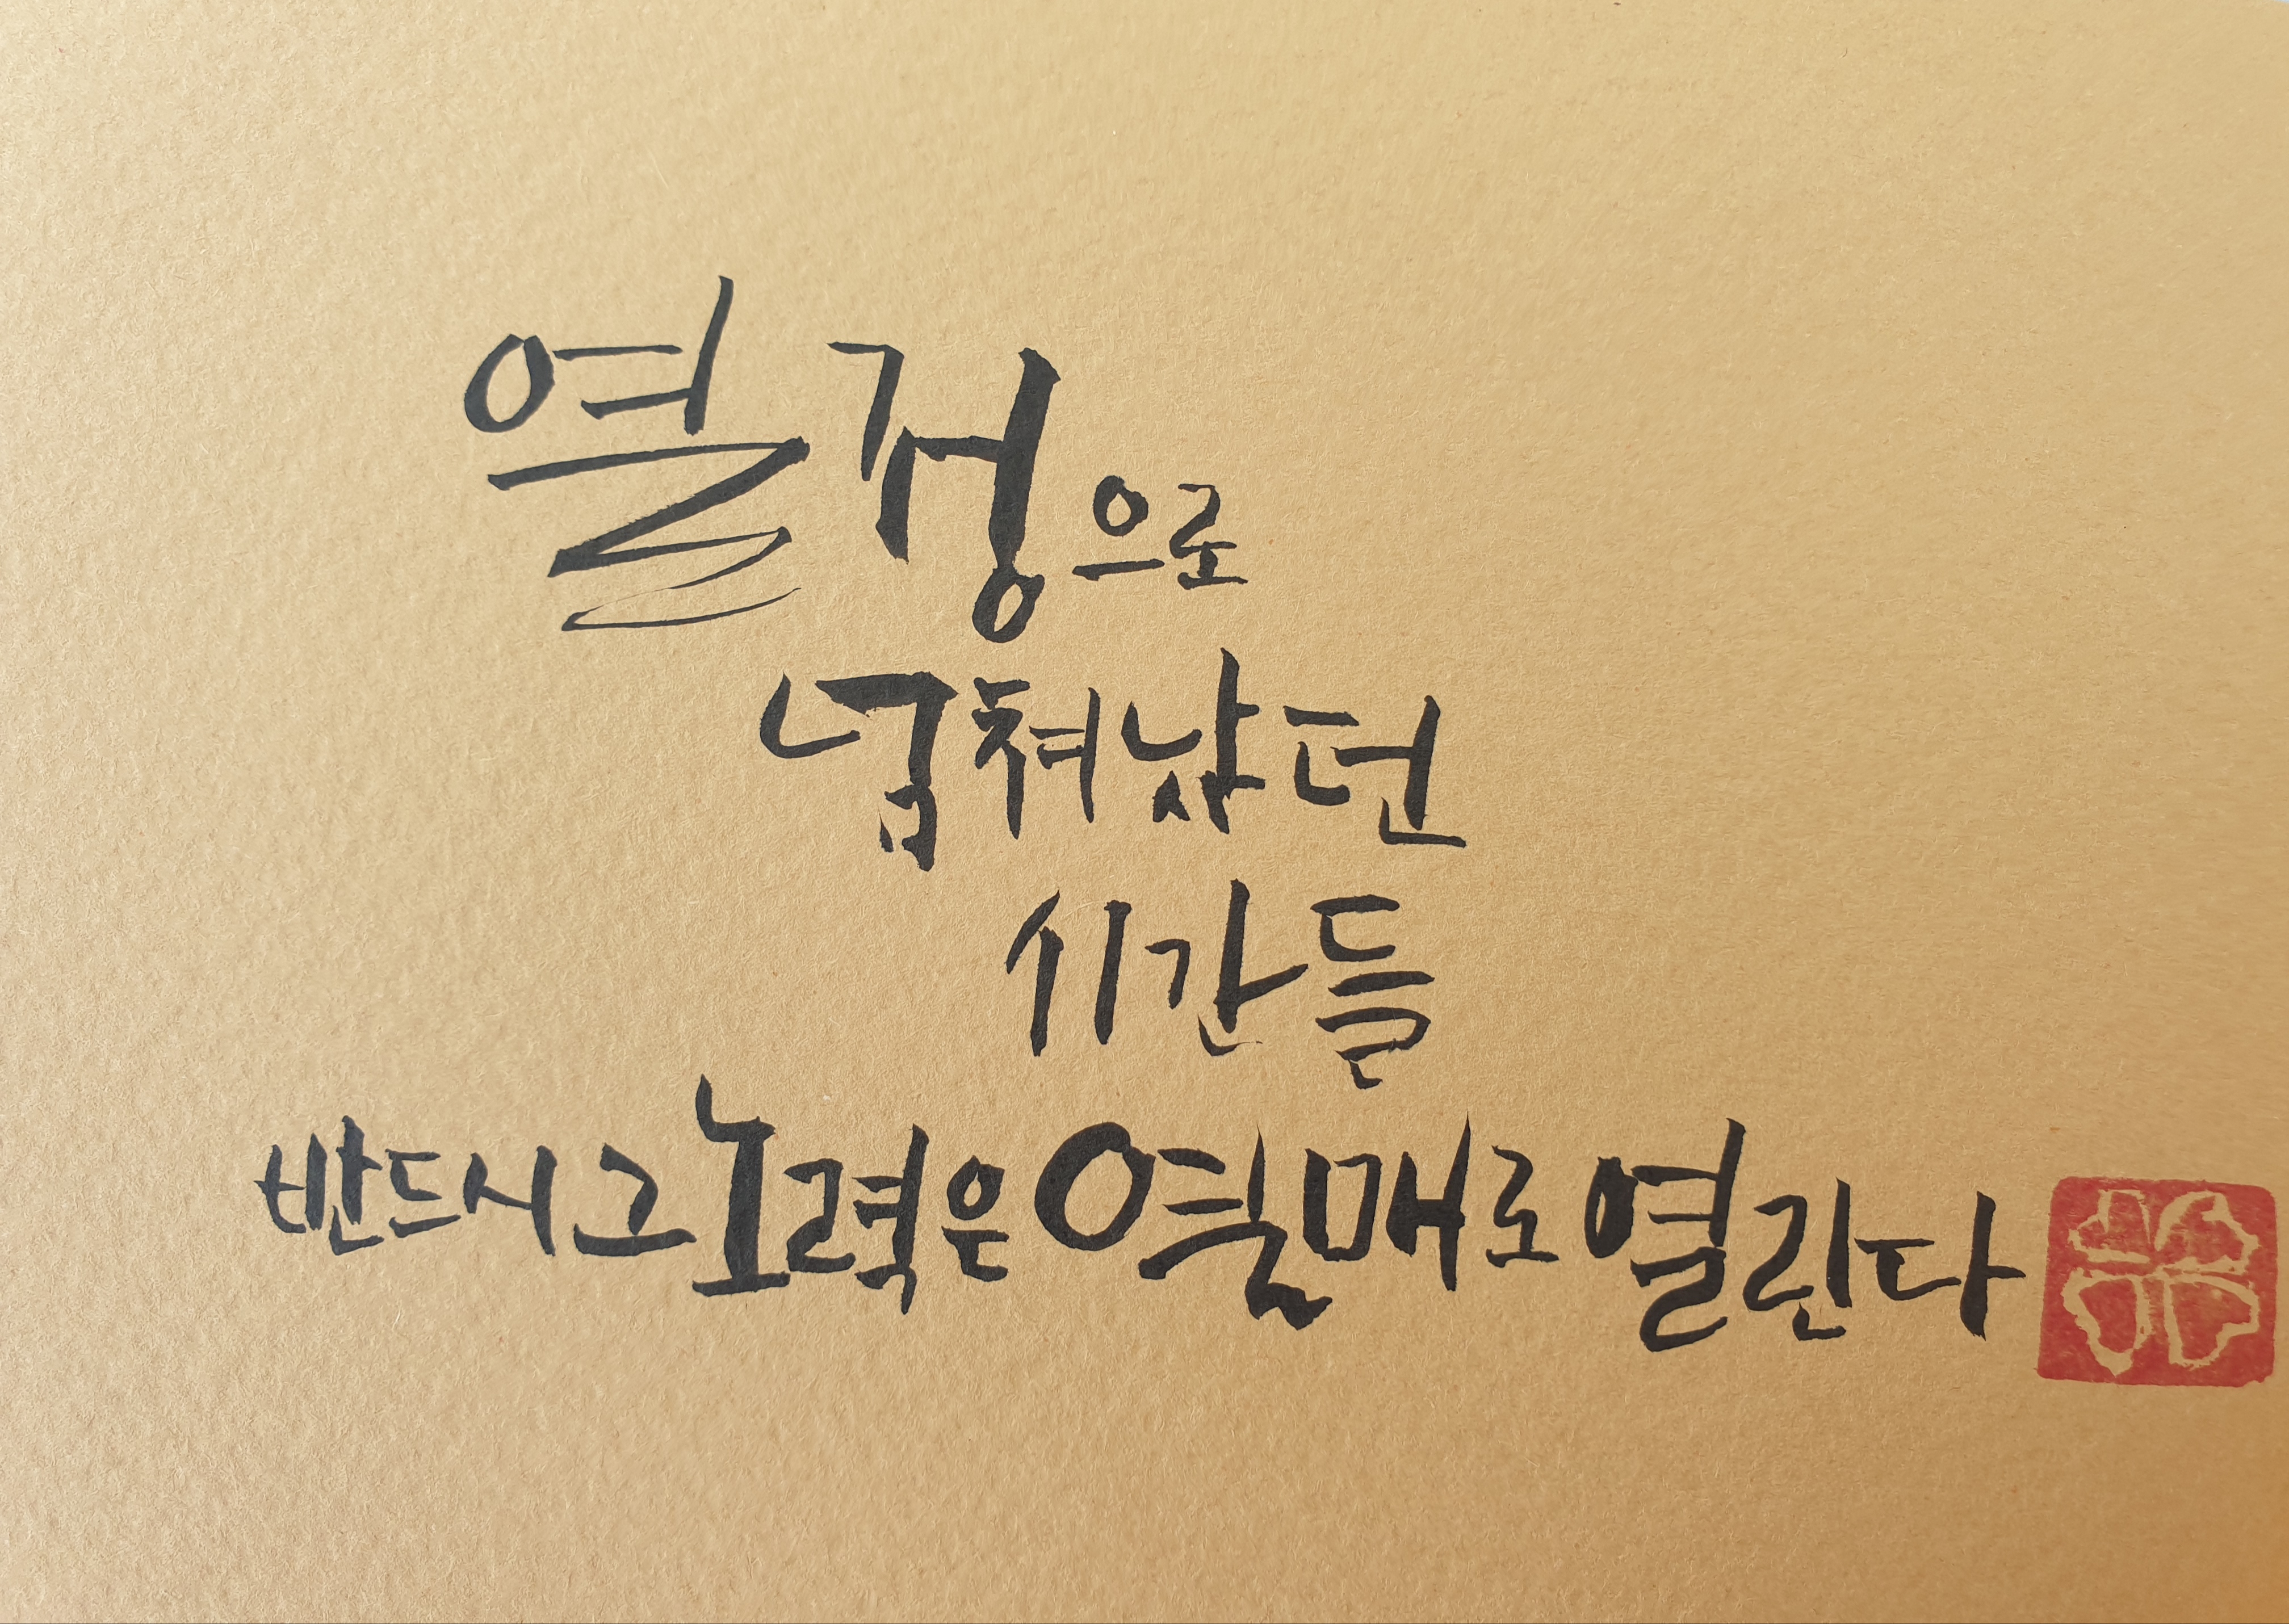 열정으로
넘쳐났던
시간들
반드시 그 노력은 열매로 열린다